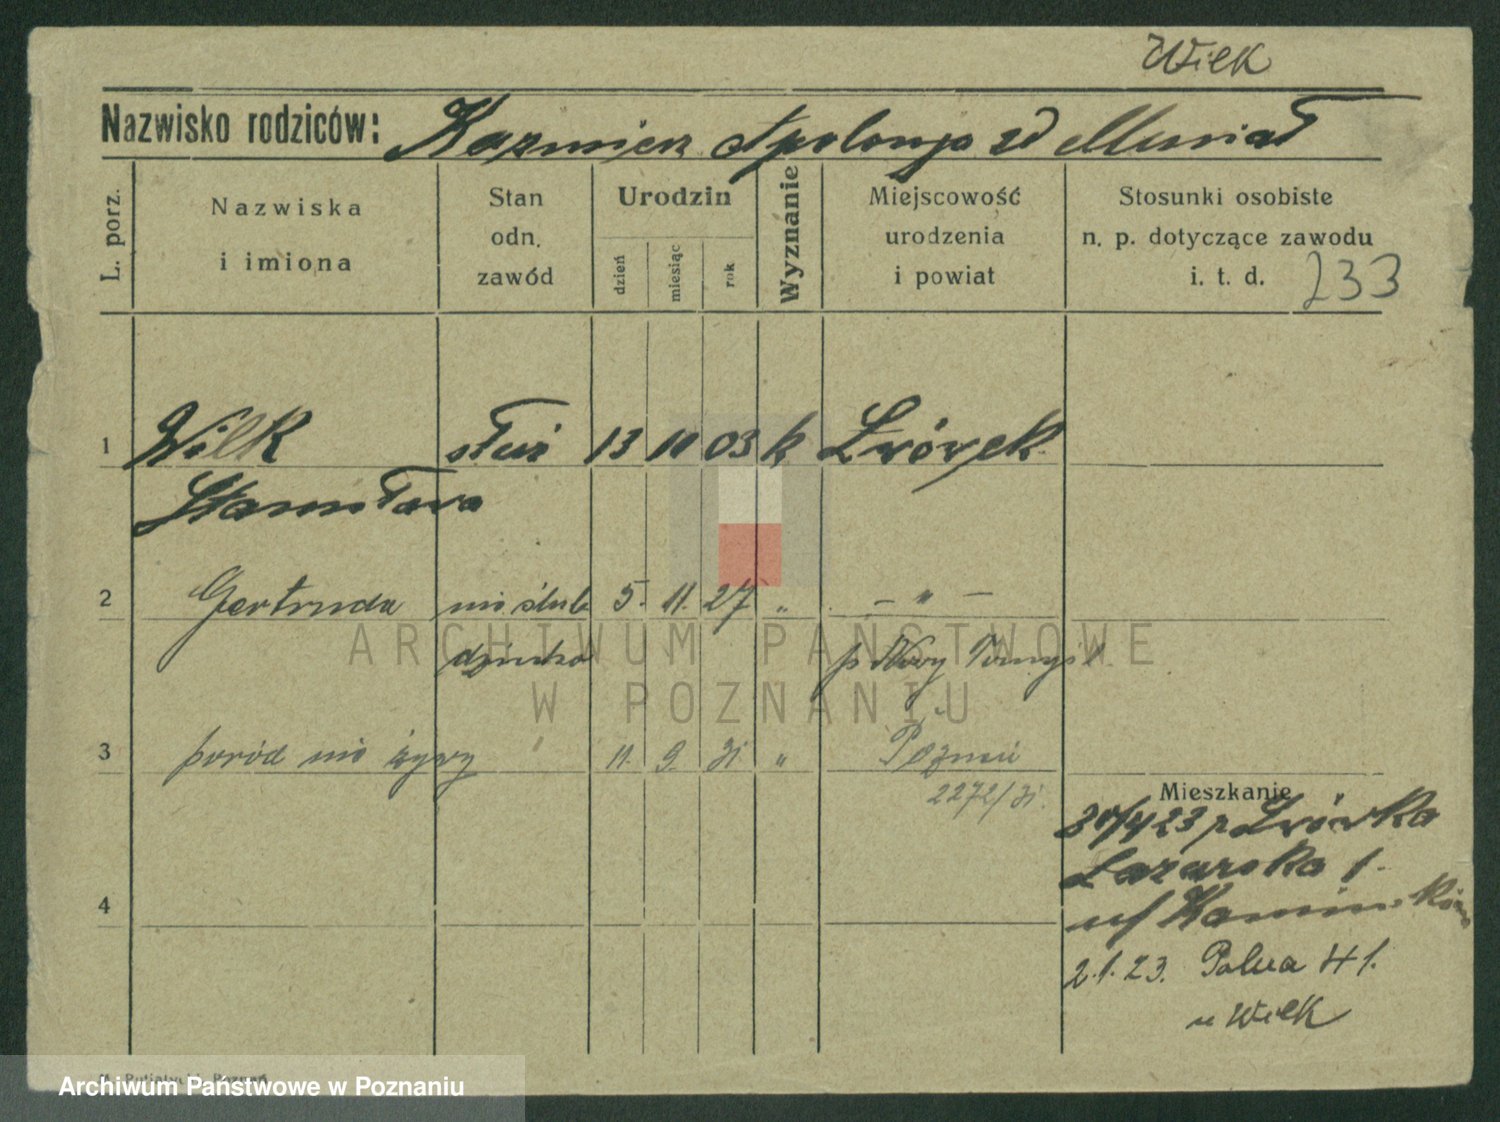 Wilk
Nazwisko rodziców: Kazmierz Apolonja zd Musiał
L. porz.
Nazwiska
i imiona
Stan
odn.
zawód
Urodzin
dzień
miesiąc
rok
Wyznanie
Miejscowość
urodzenia
i powiat
Stosunki osobiste
n. p. dotyczące zawodu
i. t. d. 233
1 Wilk służ 13 10 03 k Lwówek
Stanisława
2 Gertruda nie ślub 5. 11. 27 " — " —
dziecko p Nowy Tomyśl
3 poród nie żywy 11. 9. 31 " Poznań
2272/31.
Mieszkanie
30/4 23 z Lwówka
Łazarska 1.
4
u/ Kamińskim
2.1.23. Polna 41.
u Wilk
ARCHIWUM PAŃSTWOWE
W POZNANIU
Poznań
Archiwum Państwowe w Poznaniu